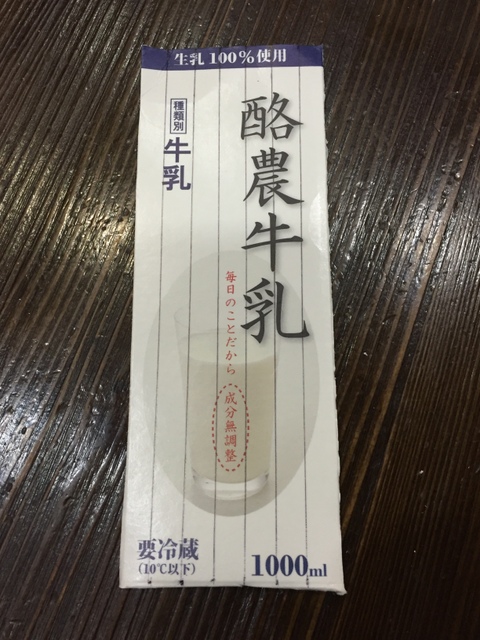 生乳100%使用
酪農牛乳
種類別
牛乳
毎日のことだから
成分無調整
要冷蔵
(10℃以下)
1000ml